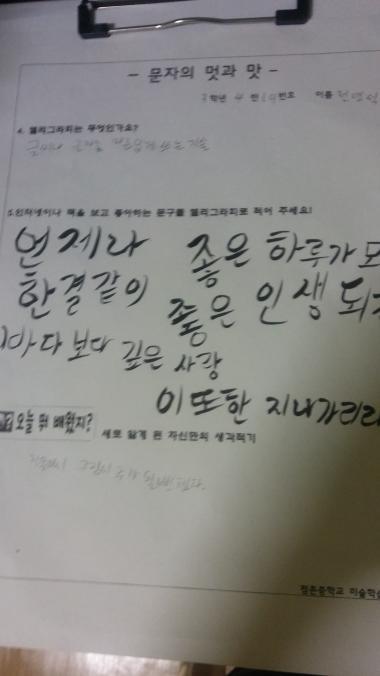 - 문자의 멋과 맛 -
학년 4 반 19번호 이름
4. 캘리그라피는 무엇인가요?
글씨나 글자를 아름답게 쓰는 기술
5.인터넷이나 책을 보고 좋아하는 문구를 캘리그라피로 적어 주세요!
언제라 좋은 하루가 모
한결같이 좋은 인생 되
바다보다 깊은 사랑
이또한 지나가리라
오늘 뭐 배웠지? 새로 알게 된 자신만의 생각적기
정촌중학교 미술학습